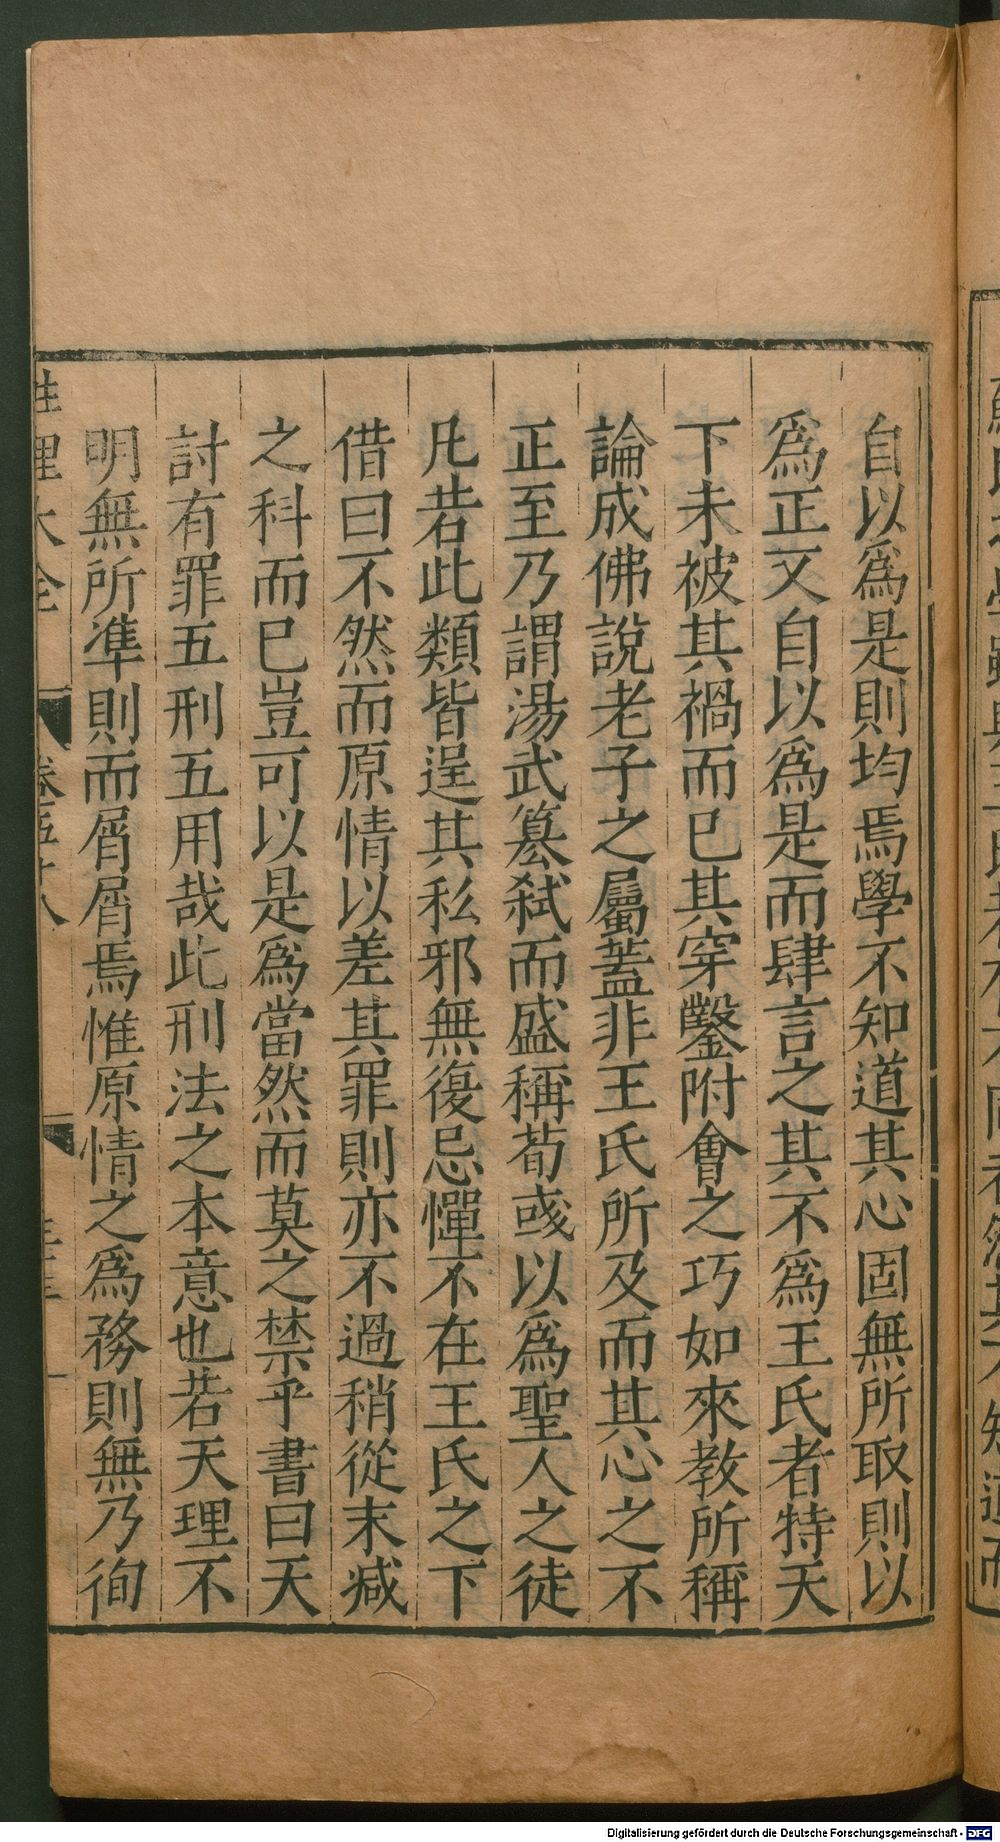 自以爲是則均焉學不知道其心固無所取則以
爲正又自以爲是而肆言之其不爲王氏者特天
下未被其禍而已其穿鑿附會之巧如來教所稱
論成佛說老子之屬蓋非王氏所及而其心之不
正至乃謂湯武簒弑而盛稱荀彧以爲聖人之徒
凡若此類皆逞其私邪無復忌憚不在王氏之下
借曰不然而原情以差其罪則亦不過稍從末减
之科而已豈可以是爲當然而莫之禁乎書曰天
討有罪五刑五用哉此刑法之本意也若天理不
明無所準則而屑屑焉惟原情之爲務則無乃徇
性理大全
卷五十八
Digitalisierung gefördert durch die Deutsche Forschungsgemeinschaft - DFG